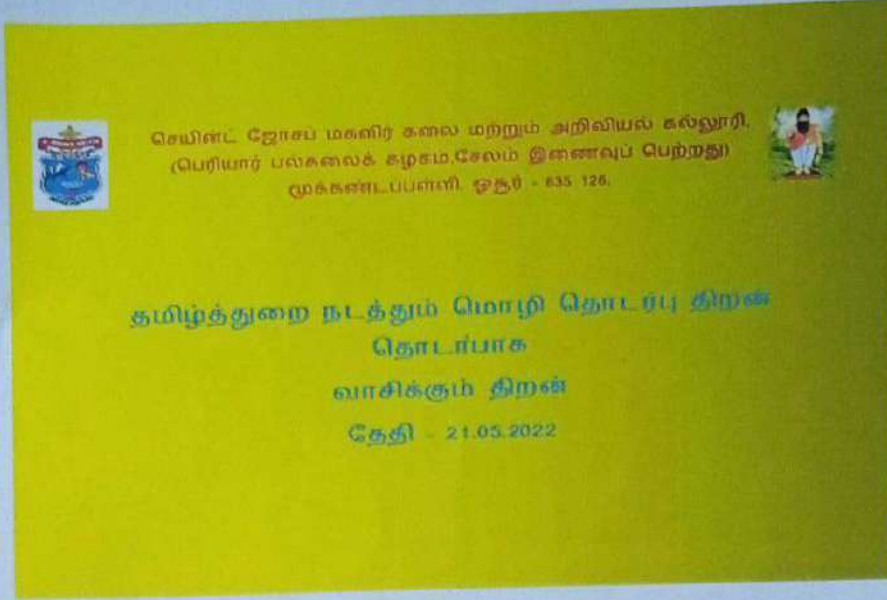 செயின்ட் ஜோசப் மகளிர் கலை மற்றும் அறிவியல் கல்லூரி,
(பெரியார் பல்கலைக் கழகம்,சேலம் இணைவுப் பெற்றது)
முக்கண்டப்பள்ளி, ஓசூர் - 635 126.
தமிழ்த்துறை நடத்தும் மொழி தொடர்பு திறன்
தொடர்பாக
வாசிக்கும் திறன்
தேதி - 21.05.2022